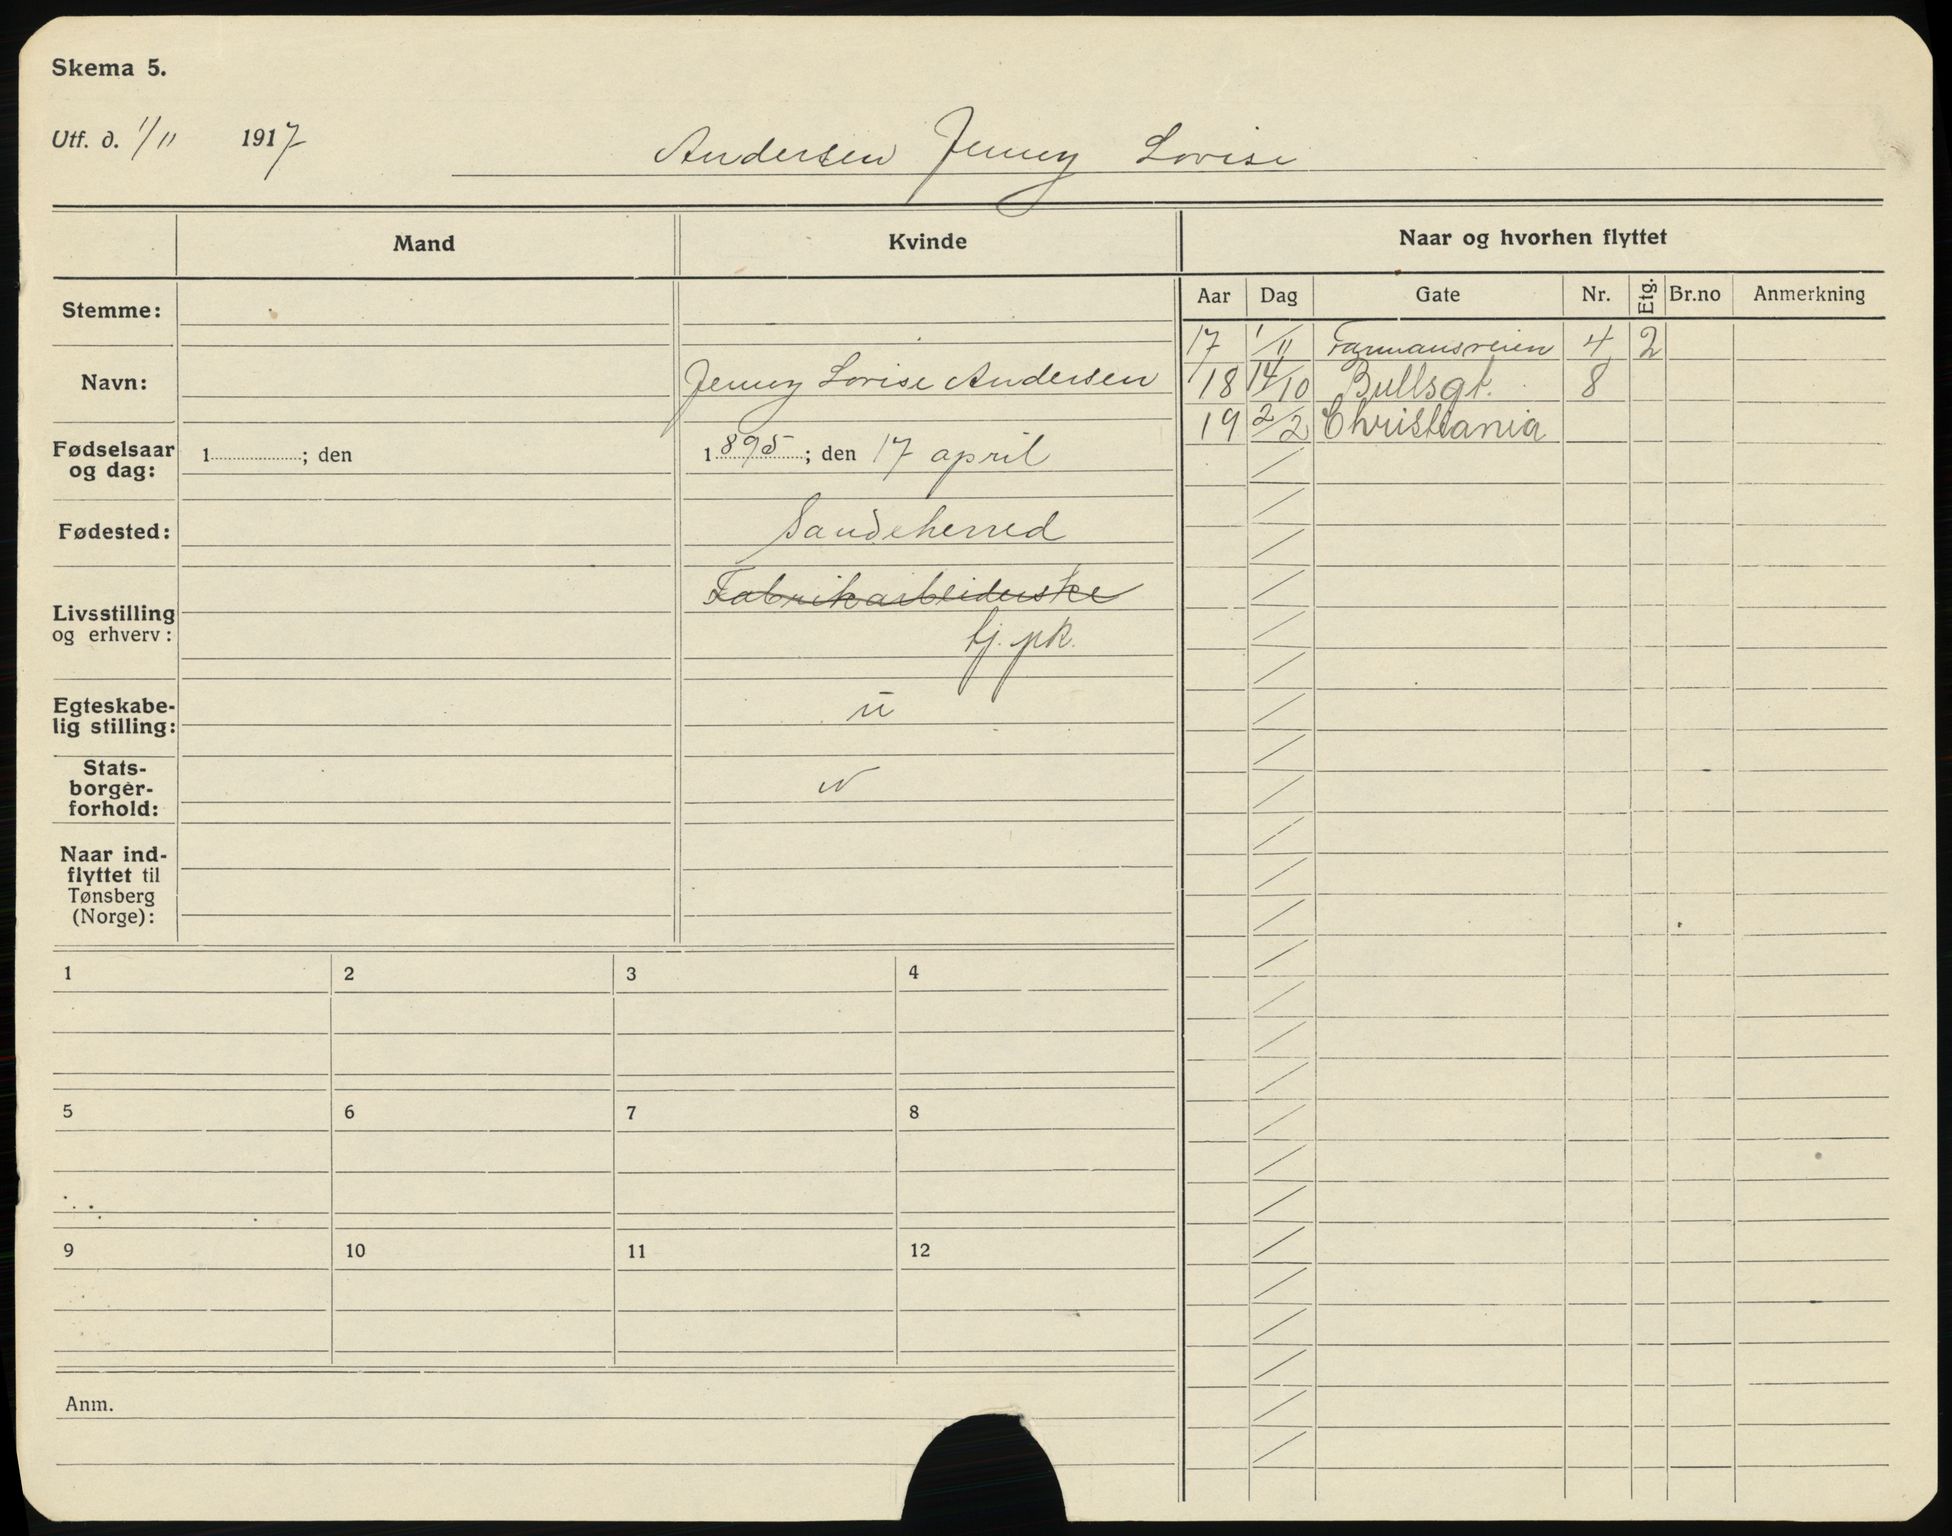 Skema 5.
Utf. d. 1/11 1917
Andersen Jenny Lovise
Mand
Kvinde
Naar og hvorhen flyttet
Aar Dag Gate Nr. Etg. Br.no Anmerkning
17 1/11 Farmansveien 4 2
18 14/10 Bullsgt. 8
19 2/2 Christiania
Stemme:
Navn: Jenny Lovise Andersen
Fødselsaar
og dag: 1 ; den 1895; den 17 april
Fødested: Sandeherred
Fabrikarbeiderske
Livsstilling
og erhverv: tj. pk.
Egteskabe-
lig stilling: u
Stats-
borger-
forhold: N
Naar ind-
flyttet til
Tønsberg
(Norge):
1 2 3 4
5 6 7 8
9 10 11 12
Anm.